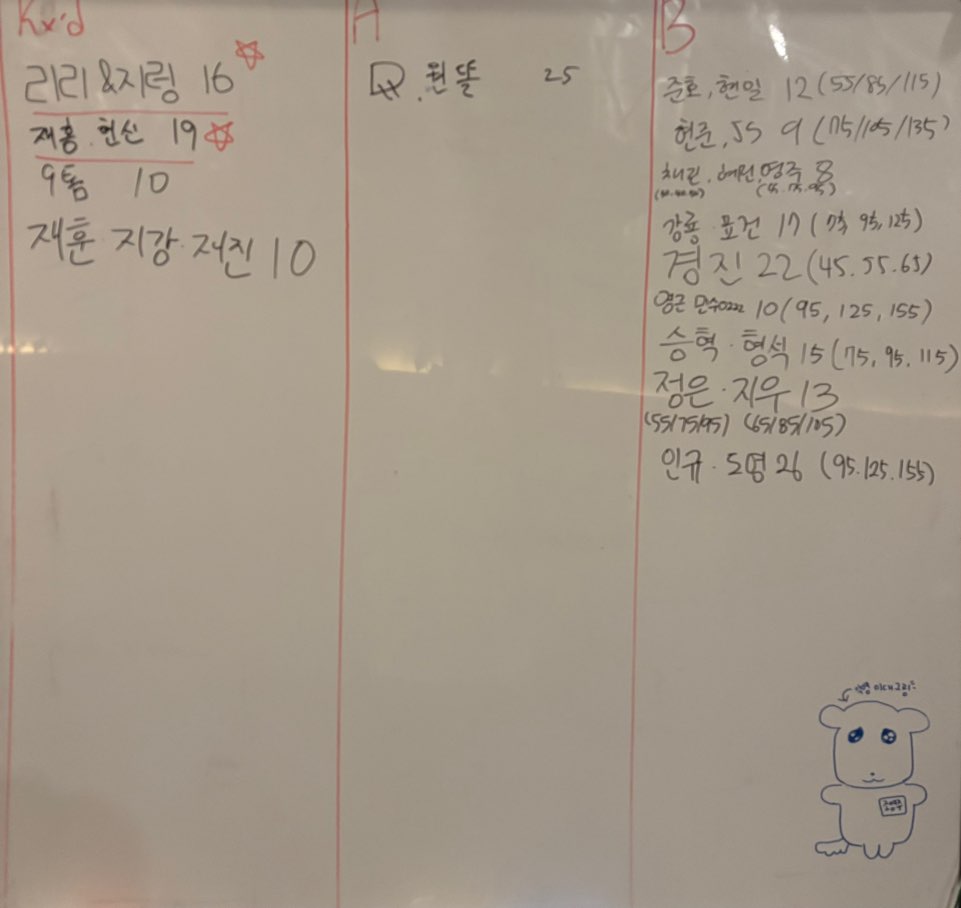 Rx'd
리리 &지렁 16
재홍.현신 19
9톰 10
재훈·지강·저진 10
A
Q.원똘 25
B
준호,현일 12 (55/85/115)
현준,JS 9 (75/105/135)
채린.혜원.영주 8
강룡·묘건 17 (75, 95, 125)
경진 22 (45.55.65)
영근 민수 10 (95, 125, 155)
승혁·형석 15 (75, 95, 115)
정은·지우 13
(55/75/95) (65/85/105)
인규·도영 26 (95.125.155)